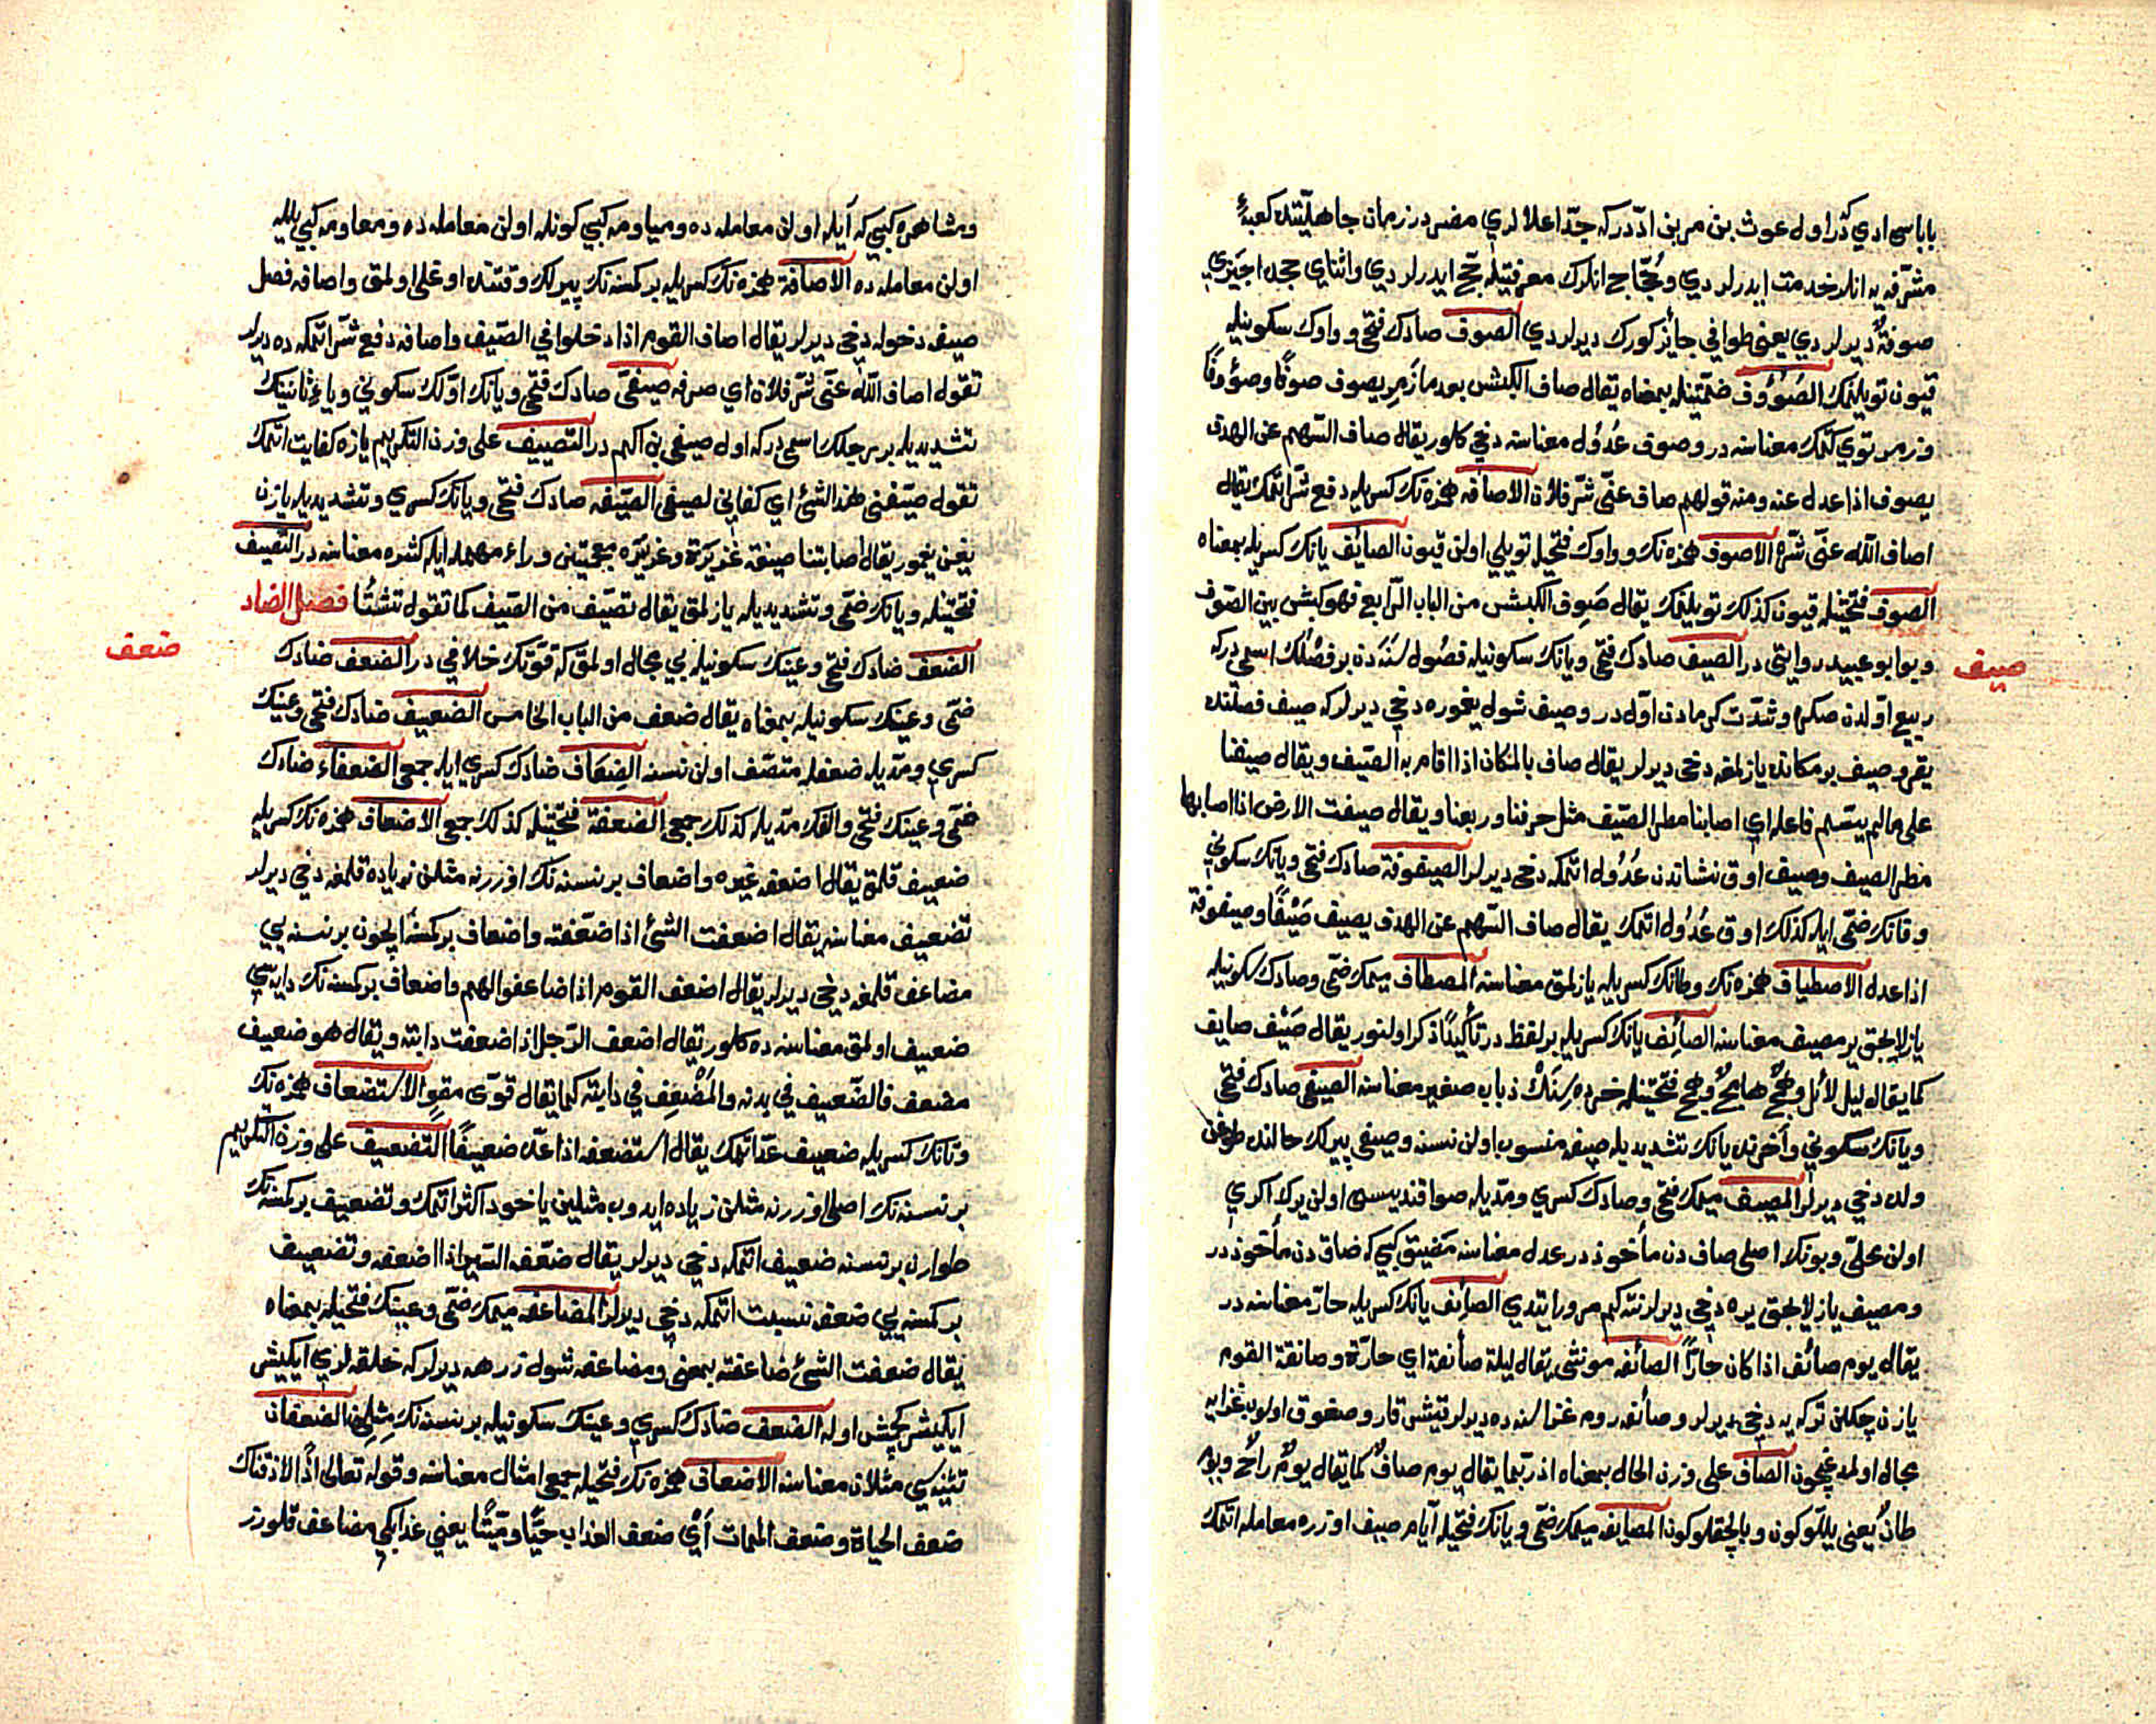 بابا سی ادی در اول غوث بن مر بن ادّ در که جدّ اعلالری مضر در زمان جاهلیتده کعبهٔ
مشرّفه یه انلر خدمت ایدرلر دی و حجّاج انلرک معرفتیله حج ایدرلر دی و اثنای حجده اجیزی
صوفة دیرلر دی یعنی طوافی جایز کورک دیرلر دی الصوف صادک فتحی و واوک سکونیله
قیون تویلنمک الصُؤوف ضمّتینله بمعناه یقال صاف الکبش بعد ما زمر یصوف صوفًا وصؤوفًا
و زمر توی کتمک معناسنه در و صوف عُدُول معناسنه دخی کلور یقال صاف السّهم عن الهدف
یصوف اذا عدل عنه ومنه قولهم صاف عنّی شرّ فلان الاصافه همزه نک کسریله دفع شرّ اتمک یقال
اصاف الله عنّی شرّه الاصوف همزه نک و واوک فتحیله تویلی اولن قیون الصائف یانک کسریله بمعناه
الصوف فتحتینله قیون کذلک تویلنمک یقال صَوِف الکبش من الباب الرّابع فهو کبش بیّن الصّوف
و بو ابو عبید روایتی در الصیف صادک فتحی و یانک سکونیله فصول سنه دن بر فصلک اسمی در که
ربیع اوّلدن صکره و شدّت کرمادن اوّل در و صیف شول یغموره دخی دیرلر که صیف فصلنده
یغر و صیف بر مکانده یازلمغه دخی دیرلر یقال صاف بالمکان اذا اقام به الصّیف و یقال صیفنا
علی ما لم یسمّ فاعله ای اصابنا مطر الصّیف مثل خرفنا و ربعنا و یقال صیفت الارض اذا اصابها
مطر الصیف و صیف اوق نشاندن عُدُول اتمکه دخی دیرلر الصیفوفة صادک فتحی و یانک سکونی
و فانک ضمّی ایله کذلک اوق عُدُول اتمک یقال صاف السّهم عن الهدف یصیف صَیْفًا و صیفوفة
اذا عدل الاصطیاف همزه نک و طانک کسریله یازلمق معناسنه المصطاف میمک ضمّی و صادک سکونیله
یازلاجق یر مصیف معناسنه الصائف یانک کسریله بر لفظ در تأکیدًا ذکر اولنور یقال صَیْف صایف
کما یقال لیل لائل و همجٌ هامجٌ و همج فتحتینله خرده سِنَکْ ذباب صغیر معناسنه الصیفی صادک فتحی
و یانک سکونی و آخرنده یانک تشدیدیله صیفه منسوب اولن نسنه و صیفی پیرلک حالنده طوغن
ولده دخی دیرلر المصیف میمک فتحی و صادک کسری و مدّیله صو اقندیسی اولن یرک اکری
اولن محلّی و بونک اصلی صاف دن مأخوذ در عدل معناسنه مَضیق کبی که ضاق دن مأخوذ در
و مصیف یازلاجق یره دخی دیرلر نته کم مرور ایتدی الصائف یانک کسریله حارّ معناسنه در
یقال یوم صائف اذا کان حارًّا الصائفه مونثی یقال لیلة صائفة ای حارّة و صائفة القوم
یازن چکلن ترکه یه دخی دیرلر و صائفه روم غزاسنه ده دیرلر قیشن قار و صغوق اولوب غزایه
مجال اولمدیغیچون الصاف علی وزن الحال بمعناه اذ ربّما یقال یوم صافٌ کما یقال یومٌ راحٌ و یوم
طانٌ یعنی یللّو کون و بالچقلو کون المصایفه میمک ضمّی و یانک فتحیله ایّام صیف اوزره معامله اتمک
صیف
ومشاهره کبی که آیله اولن معامله ده ومیاومه کبی کونله اولن معامله ده ومعاومه کبی ییلله
اولن معامله ده الاصافة همزه نک کسریله بر کمسنه نک پیرلک وقتنده اوغلی اولمق واصافه فصل
صیفه دخوله دخی دیرلر یقال اصاف القوم اذا دخلوا فی الصّیف واصافه دفع شرّ اتمکه ده دیرلر
تقول اصاف الله عنّی شرّ فلان ای صرفه صیفی صادک فتحی و یانک اوّلک سکونی و یای ثانینک
تشدیدیله بر رجلک اسمی در که اول صیفی بن اکثم در التصییف علی وزن التکریم یازه کفایت اتمک
تقول صیّفنی هذا الشئ ای کفانی لصیفی الصیّفه صادک فتحی و یانک کسری و تشدیدیله یازن
یغن یغمور یقال اصابتنا صیفة غزیرة و غزیره معجمتین وراء مهمله ایله کثیره معناسنه در التصیف
فتحتینله و یانک ضمّی و تشدیدیله یازلمق یقال تصیّف من الصّیف کما تقول تشتّا فصل الضاد
الضعف ضادک فتحی و عینک سکونیله بی مجال اولمق که قوّتک خلافی در الضعف ضادک
ضمّی و عینک سکونیله بمعناه یقال ضعف من الباب الخامس الضعیف ضادک فتحی و عینک
کسری و مدّیله ضعفله متّصف اولن نسنه الضِعاف ضادک کسری ایله جمعی الضعفاء ضادک
ضمّی و عینک فتحی و الفک مدّیله کذلک جمعی الضعفة فتحتینله کذلک جمعی الاضعاف همزه نک کسریله
ضعیف قلمق یقال اضعفه غیره واضعاف بر نسنه نک اوزرنه مثلن زیاده قلمغه دخی دیرلر
تضعیف معناسنه یقال اضعفت الشئ اذا ضعّفته واضعاف بر کمسنه ایچون بر نسنه یی
مضاعف قلمغه دخی دیرلر یقال اضعف القوم اذا ضاعفوا لهم واضعاف بر کمسنه نک دابّه سی
ضعیف اولمق معناسنه ده کلور یقال اضعف الرّجل اذا ضعفت دابّته و یقال هو ضعیف
مضعف فالضّعیف فی بدنه والمَضْعِف فی دابّته کما یقال قوّی مقوٍ الاستضعاف همزه نک
و تانک کسریله ضعیف عدّ اتمک یقال استضعفه اذا عدّه ضعیفًا التضعیف علی وزن التکریم
بر نسنه نک اصلی اوزرنه مثلن زیاده ایدوب مثلین یاخود اکثر اتمک و تضعیف بر کمسنه نک
طوارن بر نسنه ضعیف اتمکه دخی دیرلر یقال ضعّفه السّیر اذا اضعفه و تضعیف
بر کمسنه یی ضعفه نسبت اتمکه دخی دیرلر المضاعفه میمک ضمّی و عینک فتحیله بمعناه
یقال ضعفت الشئ ضاعفته بمعنی و مضاعفه شول زرهه دیرلر که حلقه لری ایکیشر
ایکیشر کچمش اوله الضعف ضادک کسری و عینک سکونیله بر نسنه نک مِثلِی الضعفان
تثنیه سی مثلان معناسنه الاضعاف همزه نک فتحیله جمعی امثال معناسنه و قوله تعالی اذًا لاذقناک
ضعف الحیاة و ضعف الممات أیْ ضعف العذاب حیًّا و میّتًا یعنی عذابکی مضاعف قلورز
ضعف